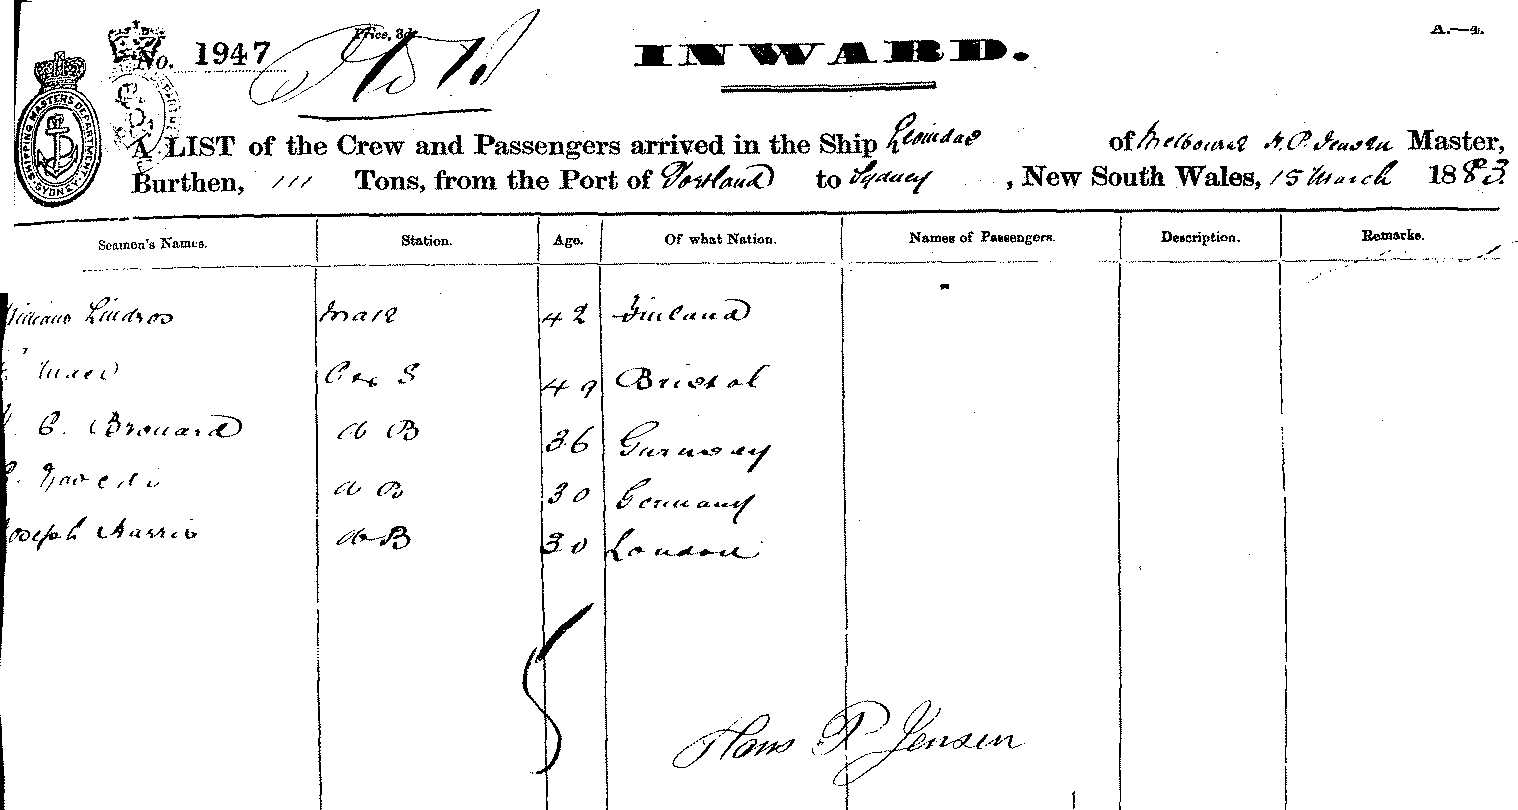 No. 1947 Price, 3d. INWARD. A.—4.
SHIPPING MASTERS DEPARTMENT SYDNEY
A LIST of the Crew and Passengers arrived in the Ship Leonidas of Melbourne H. P. Jensen Master,
Burthen, 111 Tons, from the Port of Portland to Sydney, New South Wales, 15 March 1883
Seamen's Names. Station. Age. Of what Nation. Names of Passengers. Description. Remarks.
Lindros Mate 42 Finland
49 Bristol
C. Brouard do B 36 Gurnsey
do B 30 Germany
Joseph Harris do B 30 London
Hans P Jensen